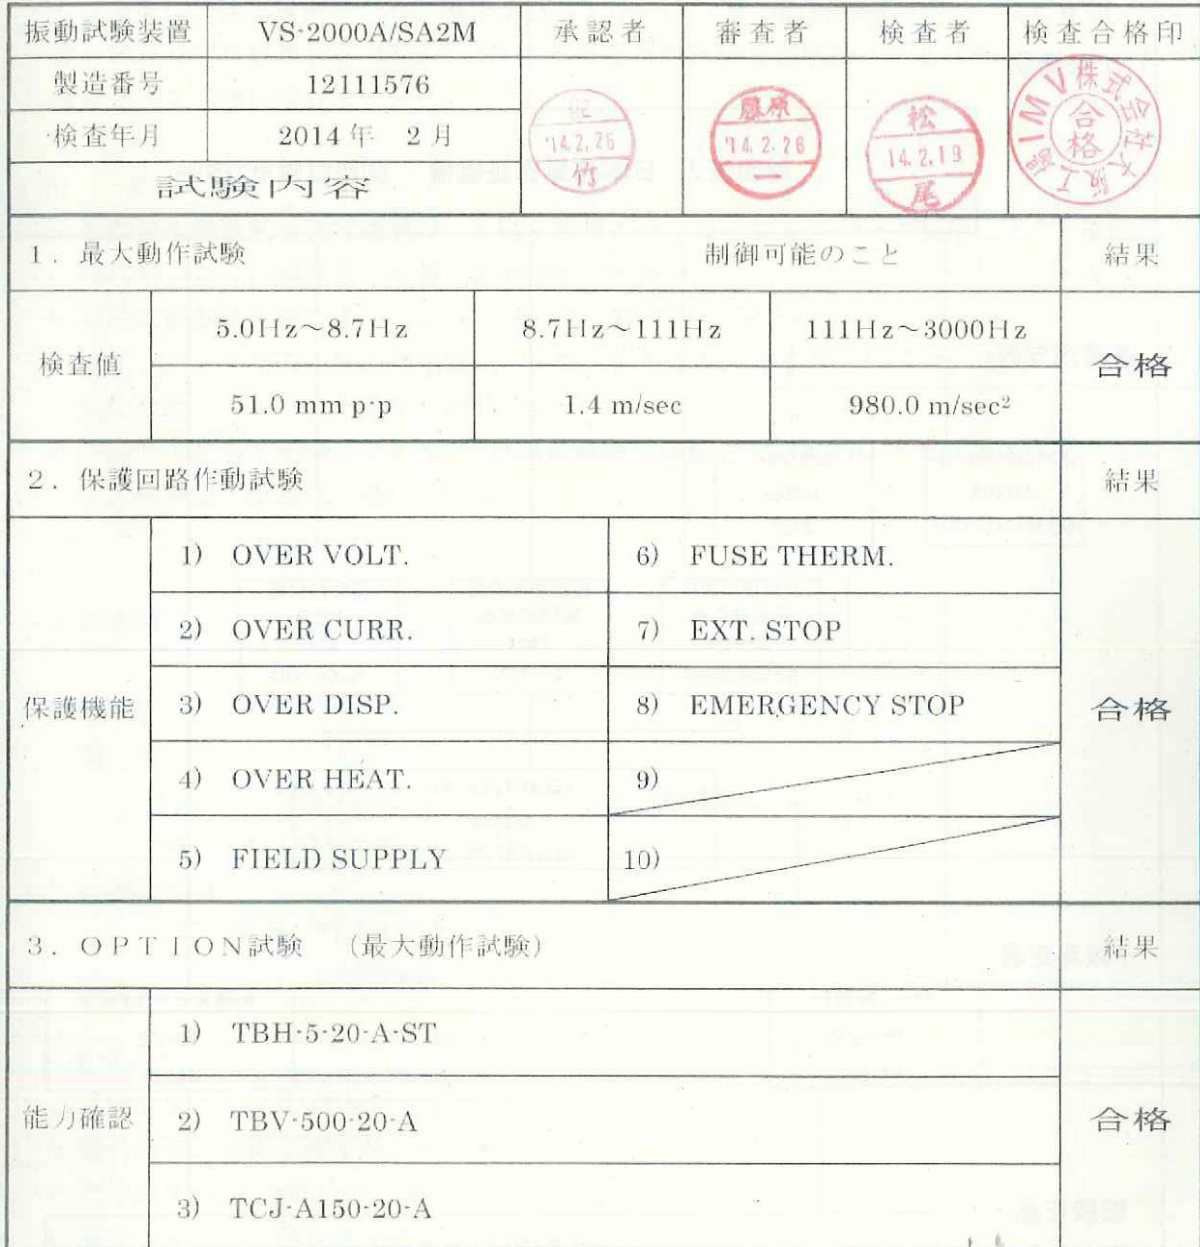 振動試験装置 VS-2000A/SA2M 承認者 審査者 検査者 検査合格印
製造番号 12111576
検査年月 2014年 2月
試験内容
'14.2.26
竹
藤原
'14.2.26
一
松
14.2.19
尾
IMV株式会社大阪工場
合格
1．最大動作試験 制御可能のこと 結果
検査値 5.0Hz～8.7Hz 8.7Hz～111Hz 111Hz～3000Hz 合格
51.0 mm p-p 1.4 m/sec 980.0 m/sec²
2．保護回路作動試験 結果
保護機能 合格
1) OVER VOLT. 6) FUSE THERM.
2) OVER CURR. 7) EXT. STOP
3) OVER DISP. 8) EMERGENCY STOP
4) OVER HEAT. 9)
5) FIELD SUPPLY 10)
3．OPTION試験 （最大動作試験） 結果
能力確認 合格
1) TBH-5-20-A-ST
2) TBV-500-20-A
3) TCJ-A150-20-A